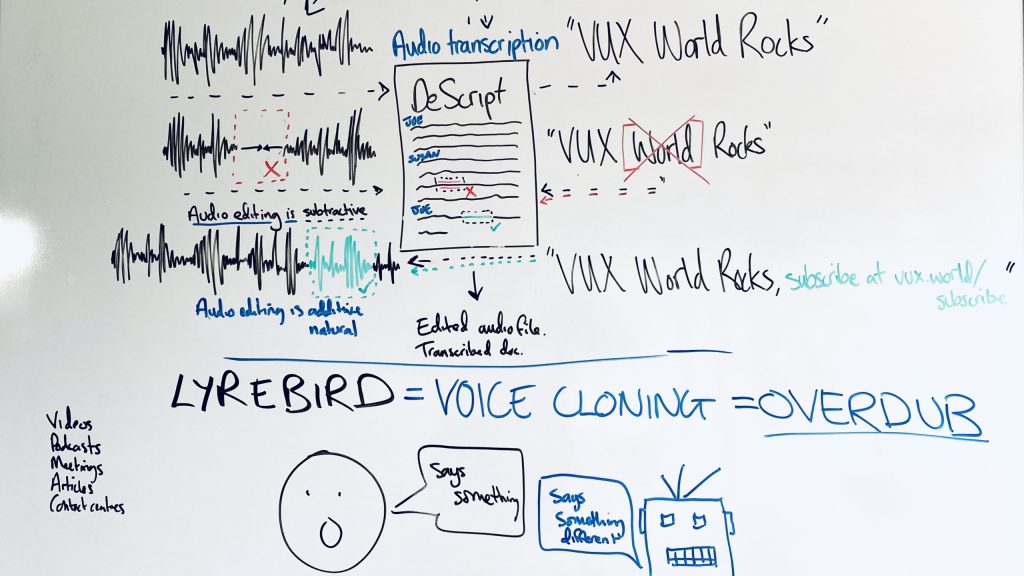 Audio transcription
"VUX World Rocks"
DeScript
JOE
SUSAN
JOE
"VUX World Rocks"
Audio editing is subtractive
"VUX World Rocks, subscribe at vux.world/
subscribe"
Audio editing is additive
natural
Edited audio file.
Transcribed doc.
LYREBIRD = VOICE CLONING = OVERDUB
Videos
Podcasts
Meetings
Articles
Contact centres
Says
something
Says
something
different